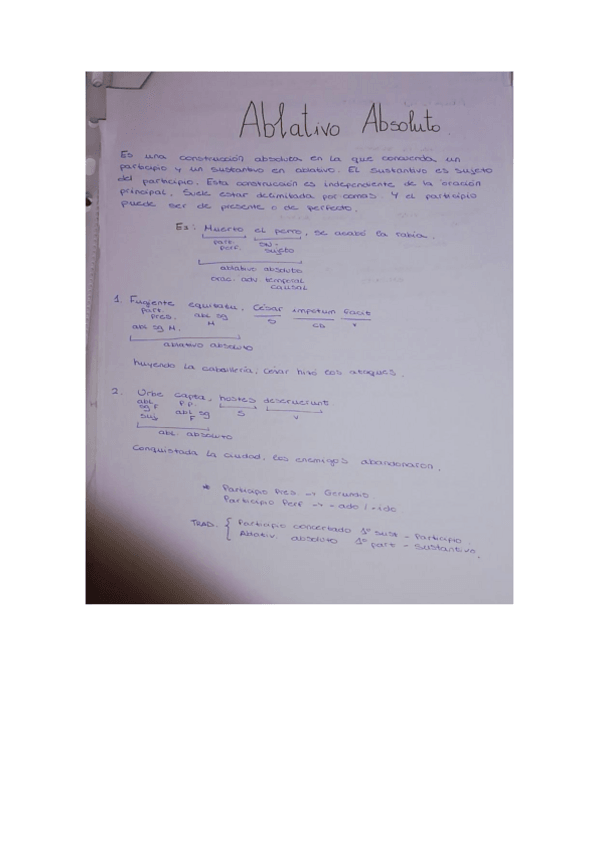 Ablativo Absoluto.
Es una construcción absoluta en la que concuerda un
participio y un sustantivo en ablativo. El sustantivo es sujeto
del participio. Esta construcción es independiente de la oración
principal. Suele estar delimitada por comas. Y el participio
puede ser de presente o de perfecto.
Ej: Muerto el perro, se acabó la rabia.
part. perf. SN - sujeto
ablativo absoluto
orac. adv. temporal
causal
1. Fugiente equitatu, César impetum facit
part. pres. abl sg M S CD V
abl sg M.
ablativo absoluto
huyendo la caballería, César hizo los ataques.
2. Urbe capta, hostes deseruerunt.
abl sg F P.P. S V
suj abl sg F
abl. absoluto
Conquistada la ciudad, los enemigos abandonaron.
* Participio Pres. → Gerundio
Participio Perf → - ado / - ido
TRAD. { Participio concertado 1º sust - Participio.
Ablativ. absoluto 1º part - Sustantivo.